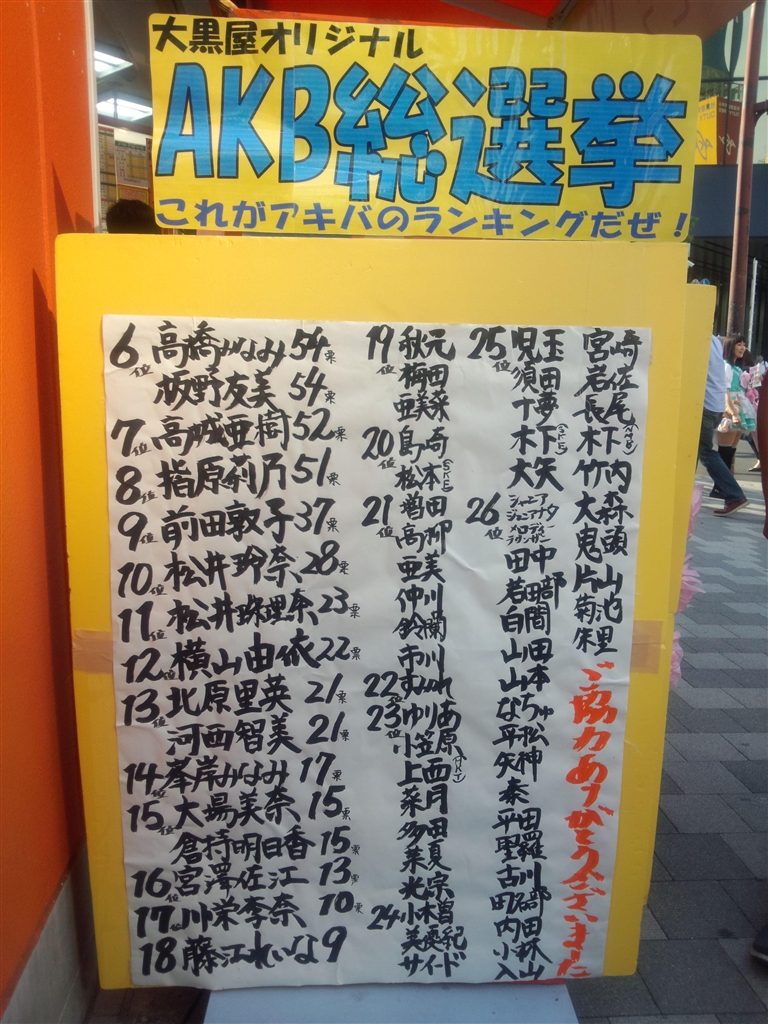 大黒屋オリジナル
AKB総選挙
これがアキバのランキングだぜ!
6位 高橋みなみ 54票
板野友美 54票
7位 高城亜樹 52票
8位 指原莉乃 51票
9位 前田敦子 37票
10位 松井玲奈 28票
11位 松井珠理奈 23票
12位 横山由依 22票
13位 北原里英 21票
河西智美 21票
14位 峯岸みなみ 17票
15位 大場美奈 15票
倉持明日香 15票
16位 宮澤佐江 13票
17位 川栄李奈 10票
18 藤江れいな 9
19位 秋元
梅田
亜美菜
20位 島崎
松本(SKE)
21位 増田
高柳
亜美
仲川
鈴蘭
市川
22位 すみれ
23位 ゆりあ
小笠原
上西
菜月
多田
菜夏
光宗
24 小木曽
美優紀
サイード
25位 児玉
須田
十夢
木下(SKE)
大矢
26位
田中
岩田
白間
山田
山本
なちゅ
平松
矢神
奈
平田
古川
内田
小林
入山
宮崎
岩佐
長尾
木下(NMB)
竹内
大森
鬼頭
片山
菊池
朱里
ご協力ありがとうございました